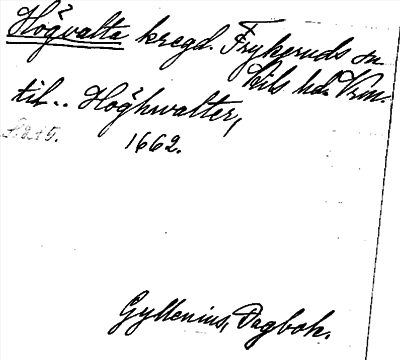 Högvalta kregd. Frykeruds sn
Kils hd. Vrm.
til.. Höghwalter,
1662.
Gyllenius, Dagbok.